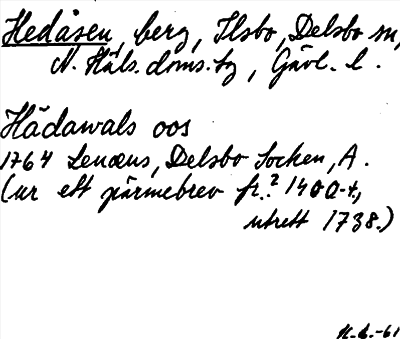 Hedåsen, berg, Ilsbo, Delsbo sn,
N. Häls. doms. hg, Gävl. l.
Hådawals oos
1764 Lenæus, Delsbo Socken, A.
(ur ett pärmebrev fr.? 1400-t.,
utrett 1738.)